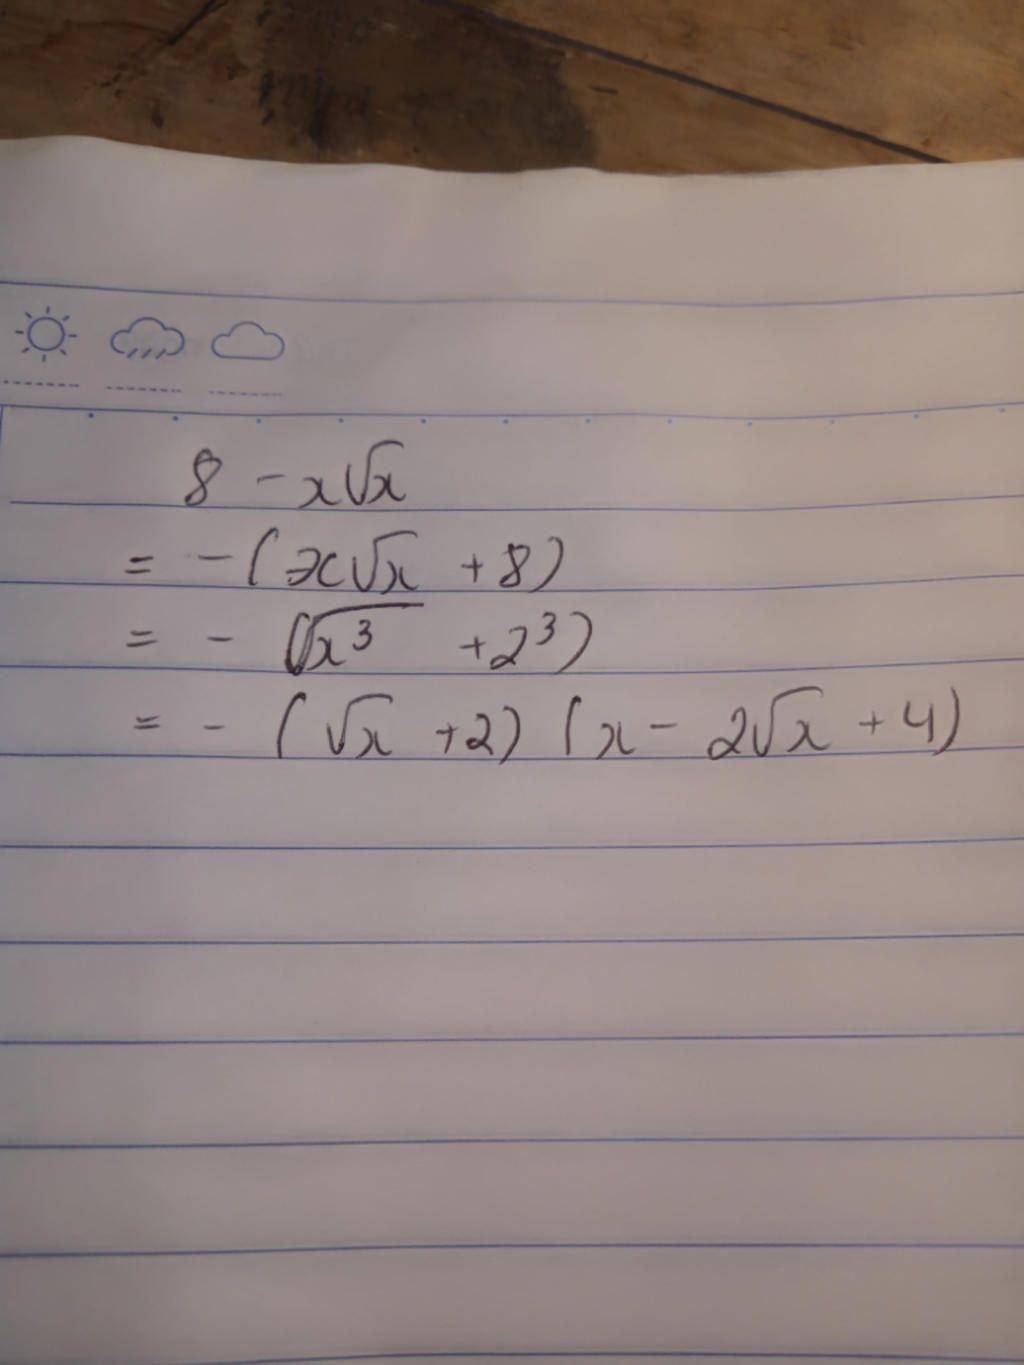 8 - x√x
= -(x√x + 8)
= - (√x³ + 2³)
= - (√x + 2) (x - 2√x + 4)